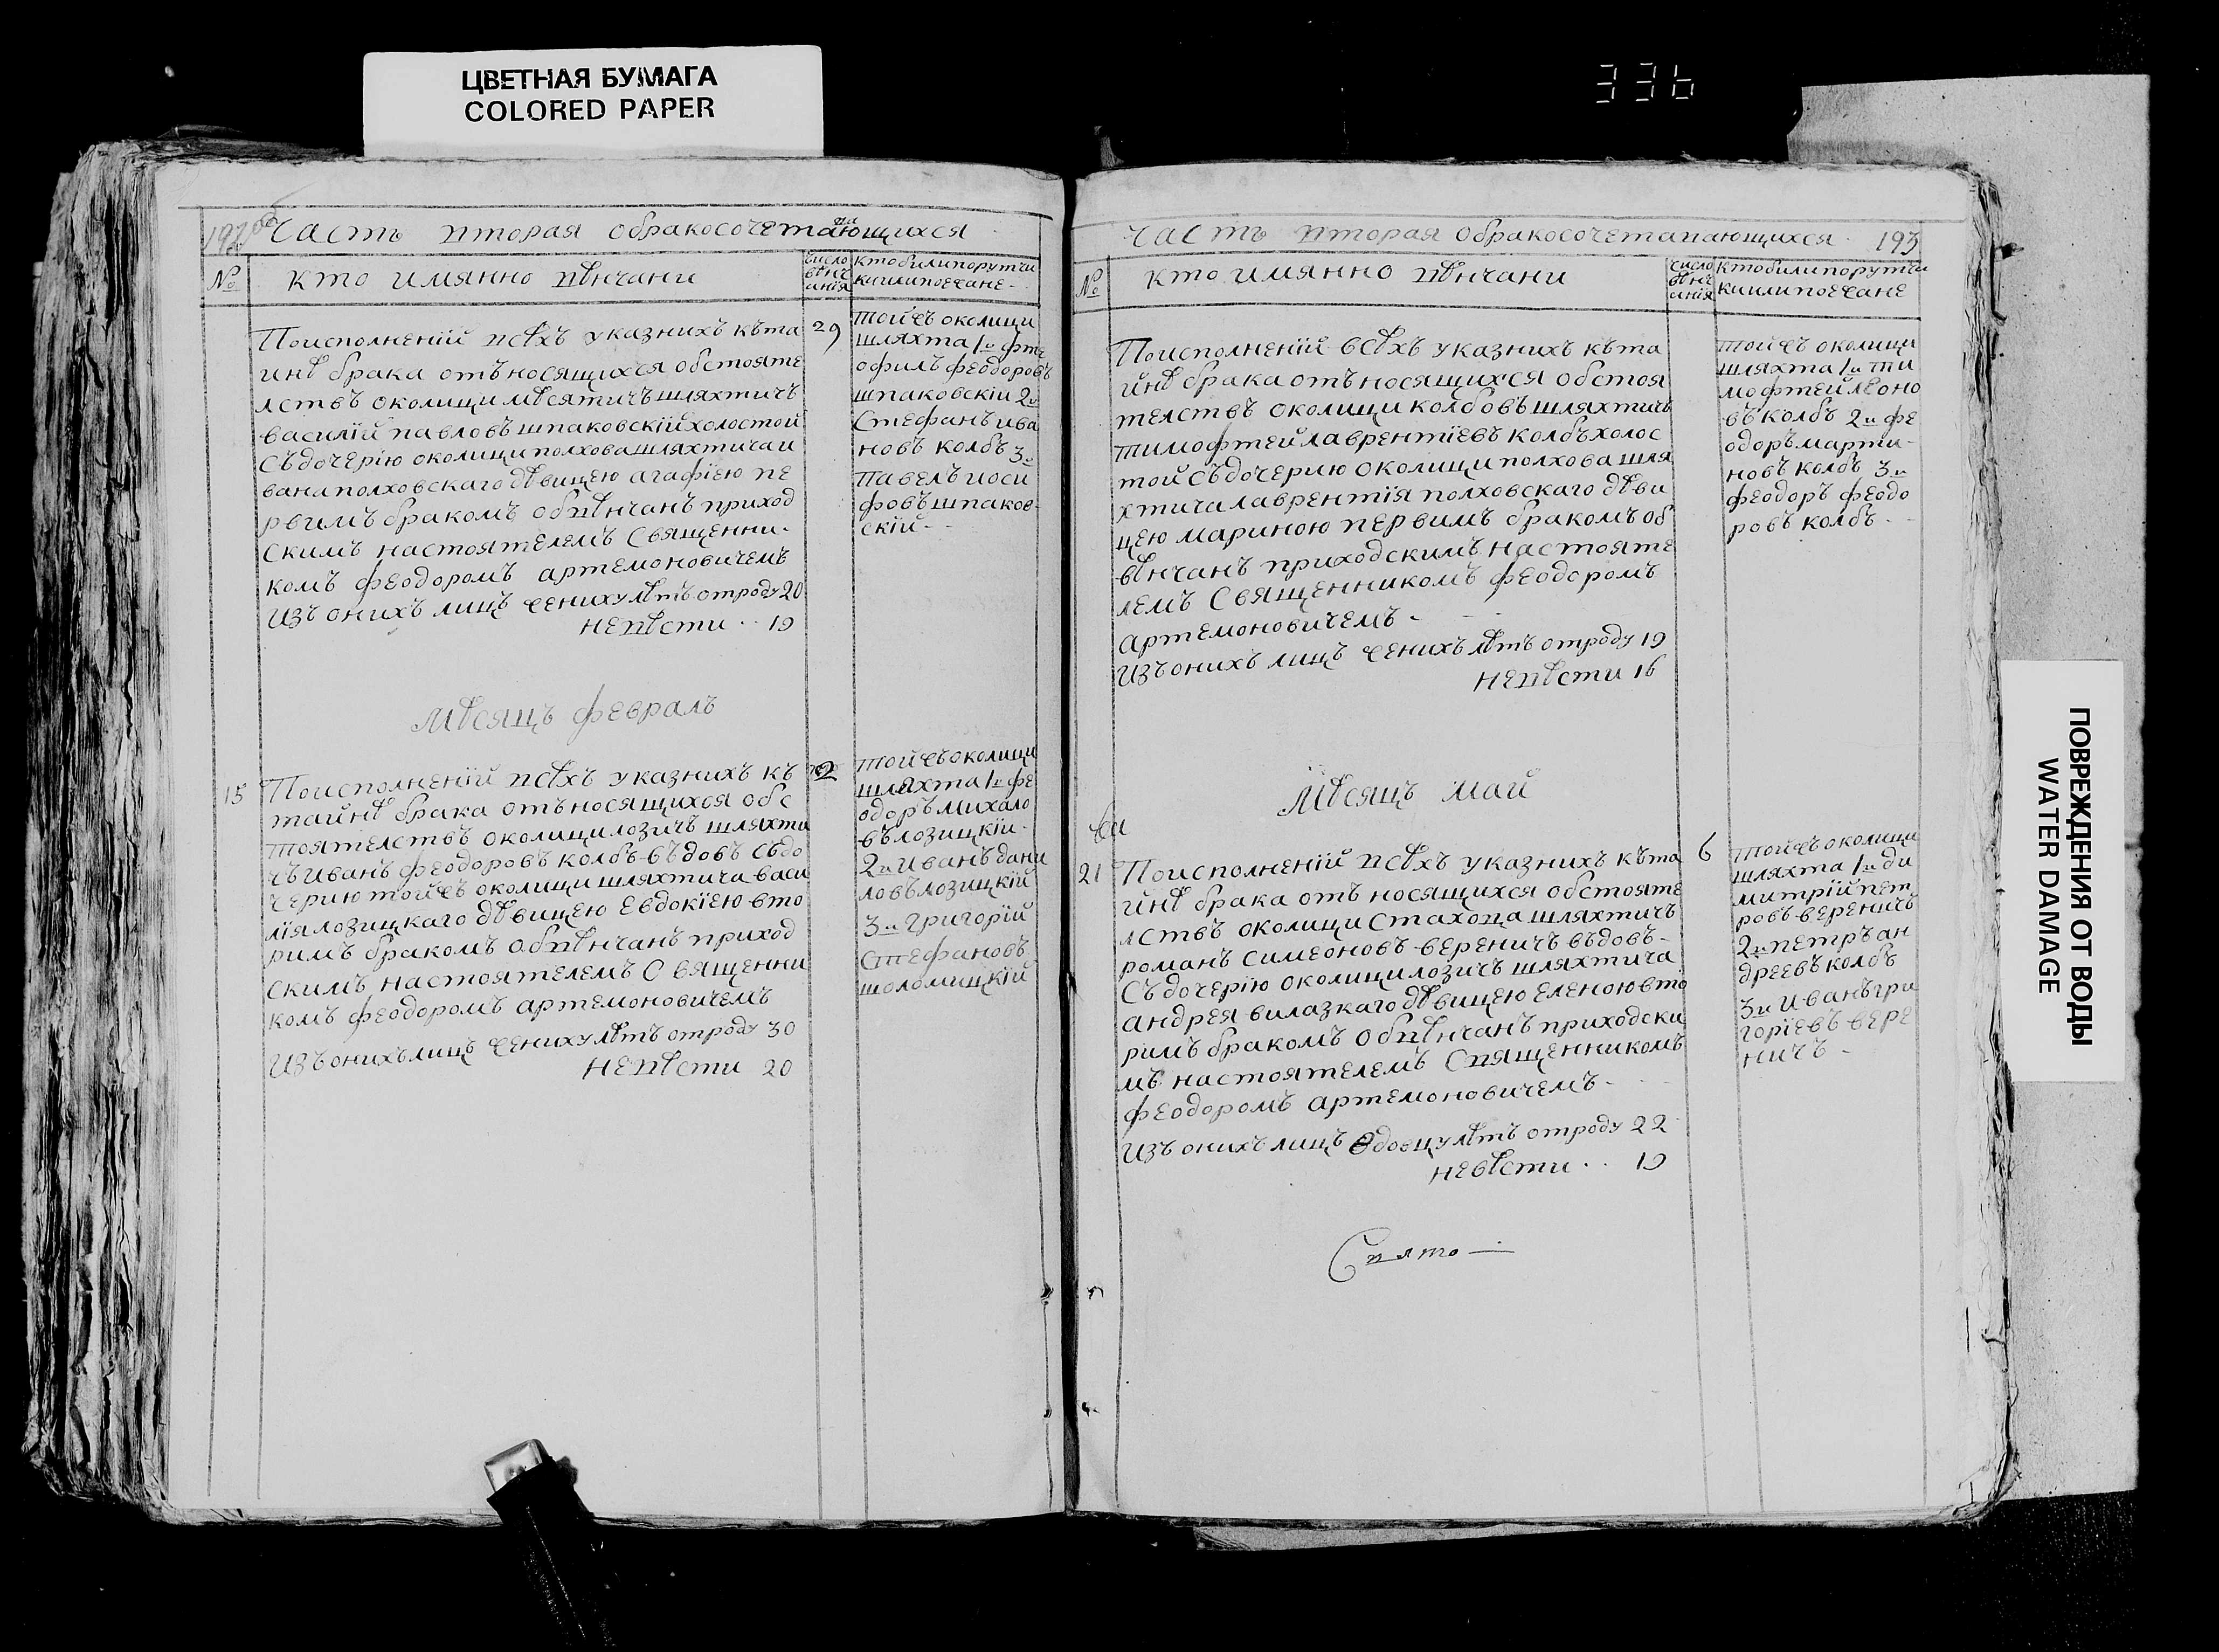 ЦВЕТНАЯ БУМАГА
COLORED PAPER
336
192 об
Часть вторая обракосочетавающихся
№
Кто имянно вѣнчани
Число
вѣнч
анія
Кто били поручи
ки или поезжане
Поисполненій всѣхъ указнихъ къ та
инѣ брака отъносящихся обстояте
лствъ околици мѣсятичъ шляхтичъ
василій павловъ шпаковскій холостой
Съ дочерію околици полхова шляхтича и
вана полховскаго дѣвицею агафіею пе
рвимъ бракомъ обвѣнчанъ приход
скимъ настоятелемъ Священни-
комъ феодоромъ артемоновичемъ
Изъ онихъ лицъ жениху лѣтъ отроду 20
невѣсти .. 19
29
Той жъ околици
шляхта 1й фте
офилъ феодоровъ
шпаковскій 2й
Стефанъ ива
новъ колбъ 3й
Павелъ иоси
фовъ шпаков-
скій -
Мѣсяцъ февралъ
15
Поисполненій всѣхъ указнихъ къ
тайнѣ брака отъносящихся обс
тоятелствъ околици лозичъ шляхти
чъ Иванъ феодоровъ колбъ-въдовъ Съдо
черию тойжъ околици шляхтича васи
лія лозицкаго дѣвицею Евдокіею вто
римъ бракомъ обвѣнчанъ приход
скимъ настоятелемъ Священни
комъ феодоромъ артемоновичемъ
Изъ онихъ лицъ жениху лѣтъ отроду 30
невѣсти 20
2
Той жъ околици
шляхта 1й фе
одоръ михало
въ лозицкій-
2й Иванъ дани
ловъ лозицкій
3й григорій
Стефановъ
шоломицкій
Часть вторая обракосочетавающихся
193
№
Кто имянно вѣнчани
Число
вѣнч
анія
Кто били поручи
ки или поезжане
Поисполненій всѣхъ указнихъ къ та
йнѣ брака отъносящихся обстоя
телствъ околици колбовъ шляхтичъ
тимофтей лаврентіевъ колбъ холос
той Съ дочерию околици полхова шля
хтича лаврентія полховскаго дѣви
цею мариною первимъ бракомъ об
вѣнчанъ приходскимъ настояте
лемъ Священникомъ феодоромъ
артемоновичемъ -
Изъ онихъ лицъ женихъ лѣтъ отроду 19
невѣсти 16
Той жъ околици
шляхта 1й ти
мофтей леоно
въ колбъ 2й фе
одоръ марти-
новъ колбъ 3й
феодоръ феодо
ровъ колбъ -
Мѣсяцъ май
21
Поисполненій всѣхъ указнихъ къ та
йнѣ брака отъ носящихся обстояте
лствъ околици Стахова шляхтичъ
романъ Симеоновъ-вереничъ въдовъ-
Съ дочерію околици лозичъ шляхтича
андрея вилазкаго дѣвицею Еленою вто
римъ бракомъ обвѣнчанъ приходски
мъ настоятелемъ Священникомъ
феодоромъ артемоновичемъ-
Изъ онихъ лицъ вдовцу лѣтъ отроду 22
невѣсти .. 19
6
Той жъ околици
шляхта 1й ди
митрій пет
ровъ-вереничъ
2й петръ ан
дреевъ колбъ
3й Иванъ гри
горіевъ вере
ничъ -
Свято —
ПОВРЕЖДЕНИЯ ОТ ВОДЫ
WATER DAMAGE